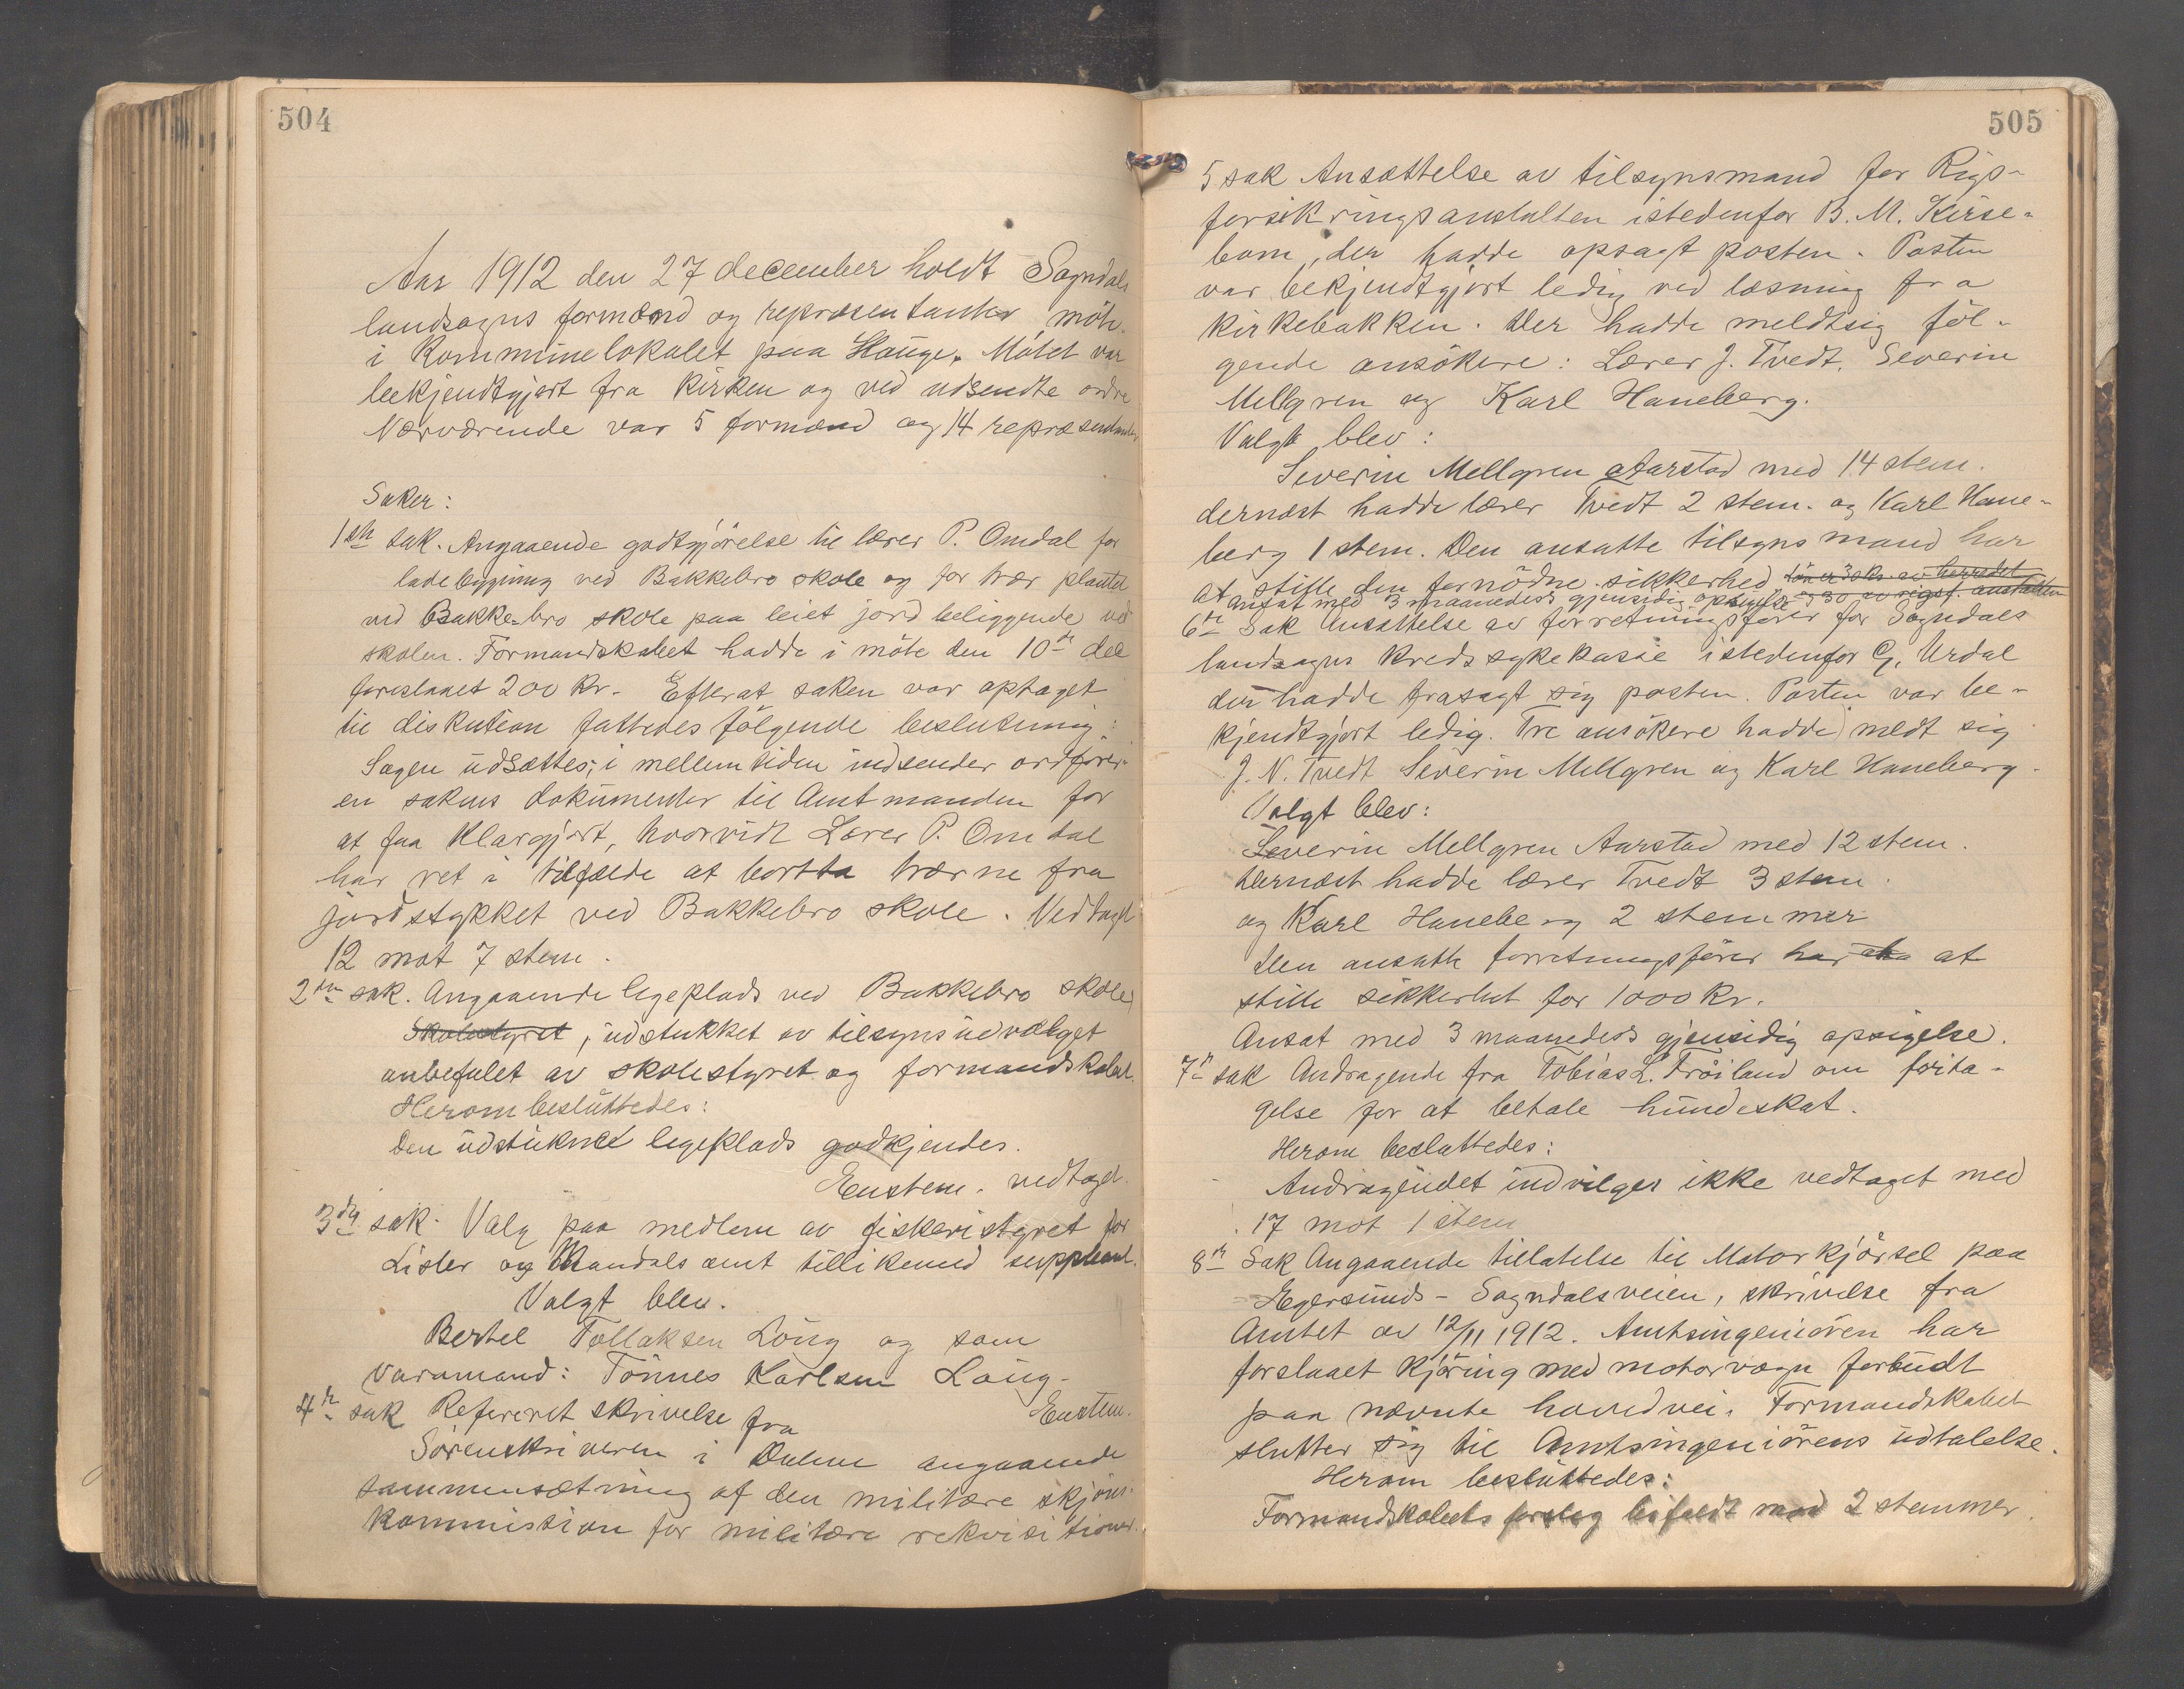 504
Aar 1912 den 27 december holdt Sogndals
landsogns formænd og repræsentanter möte
i Kommunelokalet paa Hauge. Mötet var
bekjendtgjort fra kirken og ved udsendte ordre
Nærværende var 5 formænd og 14 repræsentanter
Saker:
1ste sak. Angaaende godtgjörelse til lærer P. Omdal for
ladebygning ved Bakkebro skole og for trær plantet
ved Bakke-bro skole paa leiet jord beliggende ved
skolen. Formandskabet hadde i möte den 10de dec
foreslaaet 200 kr. Efterat saken var optaget
til diskution fattedes fölgende beslutning:
Sagen üdsættes; i mellemtiden indsender ordförer-
en sakens dokümenter til Amtmanden for
at faa klargjort, hvorvidt Lærer P. Omdal
har ret i tilfælde at bortta trærne fra
jordstykket ved Bakkebro skole. Vedtaget
12 mot 7 stem.
2den sak. Angaaende legeplads ved Bakkebro skole,
Skolestyret, üdstukket av tilsynsüdvalget
anbefalet av skolestyret og formandskabet.
Herom beslüttedes:
Den üdstükne legeplads godkjendes.
Enstem. vedtaget.
3die sak. Valg paa medlem av fiskeristyret for
Lister og Mandals amt tillikemed suppleant.
Valgt blev.
Bertel Tollaksen Löng og som
varamand: Tönnes Karlsen Laug-
Enstem.
4de sak Refereret skrivelse fra
Sörenskriveren i Dalene angaaende
sammensætning af den militære skjöns-
kommission for militære rekvisitioner.
505
5 sak Ansættelse av tilsynsmand for Rigs-
forsikringsanstalten istedenfor B. M. Kirse-
bom, der hadde opsagt posten. Posten
var bekjendtgjort ledig ved læsning fra
kirkebakken. Der hadde meldtsig föl-
gende ansökere: Lærer J. Tvedt, Severin
Mellgren og Karl Haneberg.
Valgt blev:
Severin Mellgren Aarstad med 14 stem.
dernæst hadde lærer Tvedt 2 stem. og Karl Hane-
berg 1 stem. Den ansatte tilsynsmand har
at stille den fornödne sikkerhed
Ansat med 3 maaneders gjensidig opsigelse
6te Sak Ansættelse av forretningsförer for Sogndals
landsogns kredssykekasse istedenfor G. Urdal
der hadde frasagt sig posten. Posten var be-
kjendtgjort ledig. Tre ansökere hadde meldt sig
J. N. Tvedt Severin Mellgren og Karl Haneberg.
Valgt blev:
Severin Mellgren Aarstad med 12 stem.
Dernæst hadde lærer Tvedt 3 stem.
og Karl Haneberg 2 stemmer
Den ansatte forretningsförer har at
stille sikkerhet for 1000 Kr.
Ansat med 3 maaneders gjensidig opsigelse.
7de sak Andragende fra Tobias L. Fröiland om frita-
gelse for at betale hündeskat.
Herom besluttedes:
Andragendet indvilges ikke vedtaget med
17 mot 1 stem
8de Sak Angaaende tilladelse til Motorkjörsel paa
Egersunds - Sogndalsveien, skrivelse fra
Amtet av 12/11 1912. Amtsingeniören har
forslaaet kjöring med motorvogn forbüdt
paa nævnte hovedvei. Formandskabet
slutter sig til Amtsingeniörens üdtalelse.
Herom beslüttedes:
Formandskabets forslag bifaldt mod 2 stemmer.